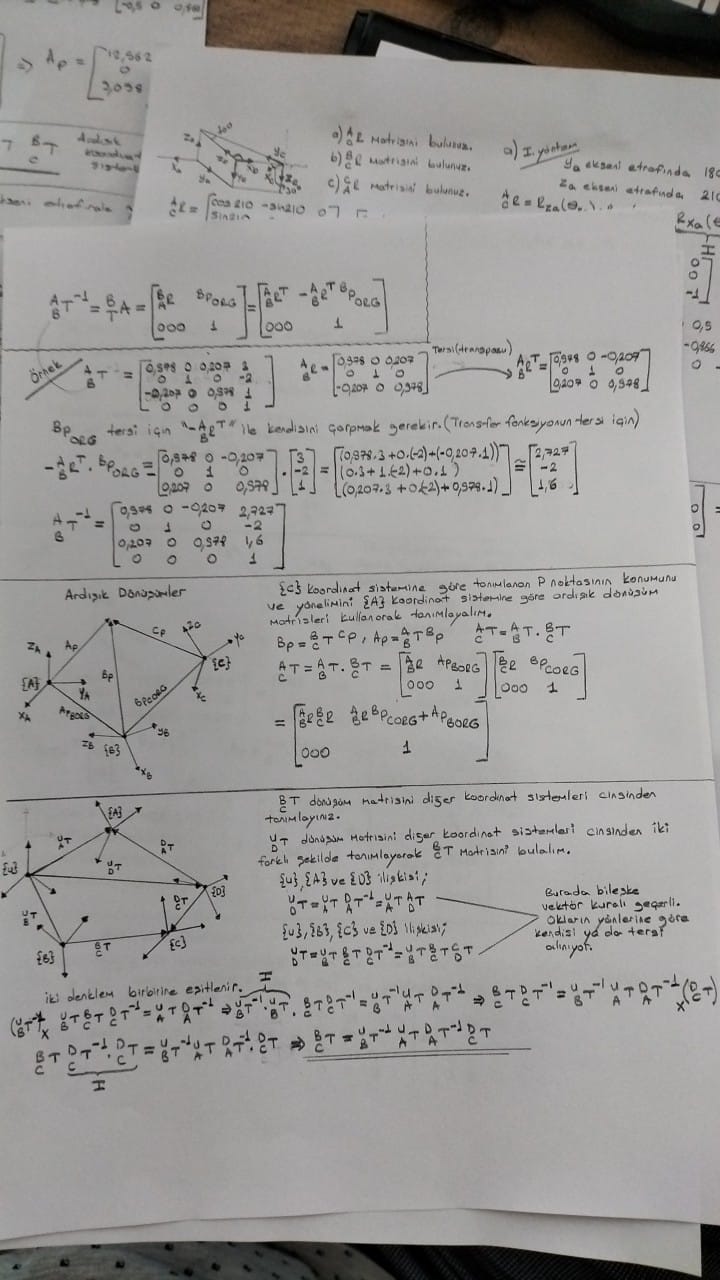 [-0,5 0 0,866]
⇒ ᴬP = [12,562
0
3,098
ᴮ_C T Ardışık
koordinat
sistem
a) ᴬ_C R Matrisini bulunuz.
b) ᴮ_C R Matrisini bulunuz.
c) ᶜ_A R matrisini bulunuz.
a) I. yöntem
ya ekseni etrafında 180
za ekseni etrafında 210
ᴬ_C R = [cos210 -sin210 0
sin210
ᴬ_C R = Rza(θ
Rxa(θ
I
0
0
-1]
0,5
-0,866
0
ᴬ_B T⁻¹ = ᴮ_T A = [ᴮ_A R ᴮP_ORG; 000 1] = [ᴬ_B Rᵀ -ᴬ_B Rᵀ ᴮP_ORG; 000 1]
Örnek
ᴬ_B T = [0,978 0 0,207 3; 0 1 0 -2; -0,207 0 0,978 1; 0 0 0 1]
ᴬ_B R = [0,978 0 0,207; 0 1 0; -0,207 0 0,978]
Tersi(transpozu)
ᴬ_B Rᵀ = [0,978 0 -0,207; 0 1 0; 0,207 0 0,978]
ᴮP_ORG tersi için "-ᴬ_B Rᵀ" ile kendisini çarpmak gerekir. (Transfer fonksiyonun tersi için)
-ᴬ_B Rᵀ . ᴮP_ORG = [0,978 0 -0,207; 0 1 0; 0,207 0 0,978] . [3; -2; 1] = [(0,978.3+0.(-2)+(-0,207.1)); (0.3+1.(-2)+0.1); (0,207.3+0.(-2)+0,978.1)] ≅ [2,727; -2; 1,6]
ᴬ_B T⁻¹ = [0,978 0 -0,207 2,727; 0 1 0 -2; 0,207 0 0,978 1,6; 0 0 0 1]
Ardışık Dönüşümler
{C} koordinat sistemine göre tanımlanan P noktasının konumunu
ve yönelimini {A} koordinat sistemine göre ardışık dönüşüm
matrisleri kullanarak tanımlayalım.
ᴮP = ᴮ_C T ᶜP, ᴬP = ᴬ_B T ᴮP ᴬ_C T = ᴬ_B T . ᴮ_C T
ᴬ_C T = ᴬ_B T . ᴮ_C T = [ᴬ_B R ᴬP_BORG; 000 1] [ᴮ_C R ᴮP_CORG; 000 1]
= [ᴬ_B R ᴮ_C R ᴬ_B R ᴮP_CORG + ᴬP_BORG; 000 1]
ZA
AP
{A}
YA
XA
ᴬP_BORG
BP
CP
ZC
YC
{C}
XC
ᴮP_CORG
ZB
{B}
YB
XB
ᴮ_C T dönüşüm matrisini diğer koordinat sistemleri cinsinden
tanımlayınız.
ᵁ_D T dönüşüm matrisini diğer koordinat sistemleri cinsinden iki
farklı şekilde tanımlayarak ᴮ_C T matrisini bulalım.
{U}, {A} ve {D} ilişkisi;
ᵁ_D T = ᵁ_A T ᴰ_A T⁻¹ = ᵁ_A T ᴬ_D T
{U}, {B}, {C} ve {D} ilişkisi;
ᵁ_D T = ᵁ_B T ᴮ_C T ᴰ_C T⁻¹ = ᵁ_B T ᴮ_C T ᶜ_D T
Burada bileşke
vektör kuralı geçerli.
Okların yönlerine göre
kendisi ya da tersi
alınıyor.
{A}
ᵁ_A T
ᴰ_A T
{U}
ᵁ_D T
{D}
ᵁ_B T
ᴰ_C T
{B}
ᴮ_C T
{C}
iki denklem birbirine eşitlenir.
I
(ᵁ_B T⁻¹) x ᵁ_B T ᴮ_C T ᴰ_C T⁻¹ = ᵁ_A T ᴰ_A T⁻¹ ⇒ ᵁ_B T⁻¹ . ᵁ_B T . ᴮ_C T ᴰ_C T⁻¹ = ᵁ_B T⁻¹ ᵁ_A T ᴰ_A T⁻¹ ⇒ ᴮ_C T ᴰ_C T⁻¹ = ᵁ_B T⁻¹ ᵁ_A T ᴰ_A T⁻¹ x (ᴰ_C T)
ᴮ_C T ᴰ_C T⁻¹ . ᴰ_C T = ᵁ_B T⁻¹ ᵁ_A T ᴰ_A T⁻¹ . ᴰ_C T ⇒ ᴮ_C T = ᵁ_B T⁻¹ ᵁ_A T ᴰ_A T⁻¹ ᴰ_C T
I